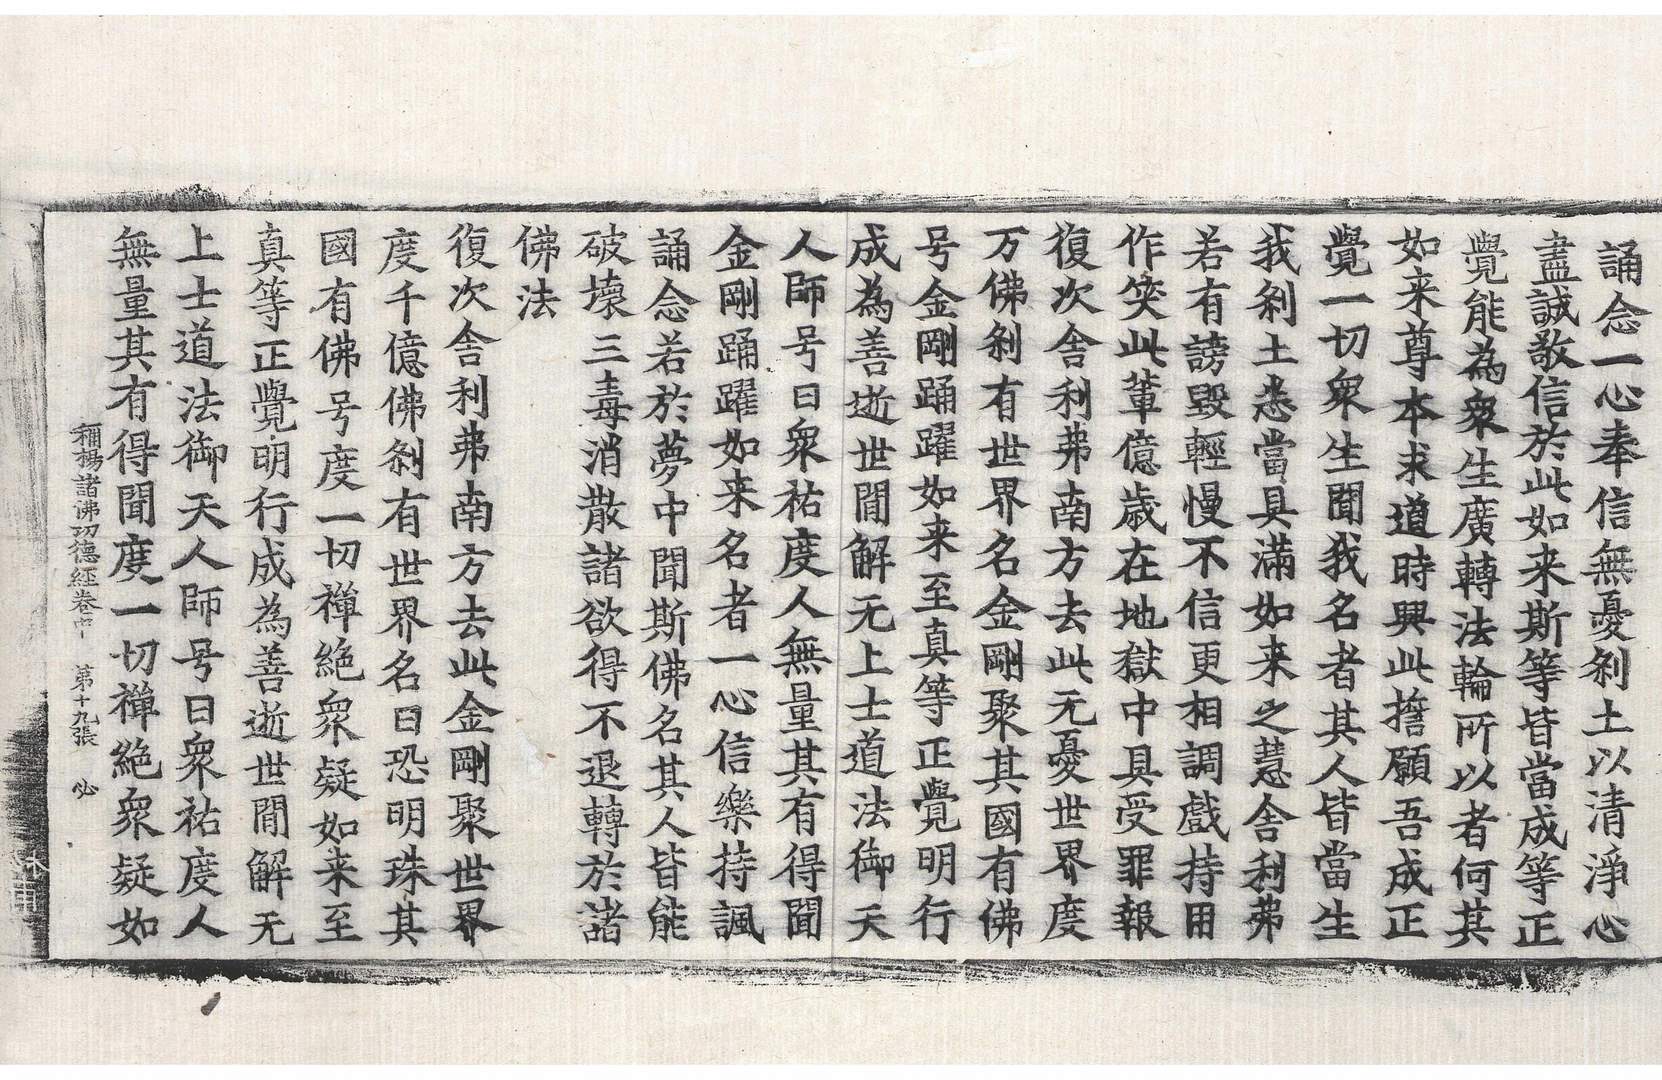 誦念一心奉信無憂刹土以清淨心
盡誠敬信於此如来斯等皆當成等正
覺能為衆生廣轉法輪所以者何其
如来尊本求道時興此擔願吾成正
覺一切衆生聞我名者其人皆當生
我刹土悉當具滿如来之慧舍利弗
若有謗毀輕慢不信更相調戲持用
作笑此輩億歲在地獄中具受罪報
復次舍利弗南方去此无憂世界度
万佛刹有世界名金剛聚其國有佛
号金剛踊躍如来至真等正覺明行
成為善逝世間解无上士道法御天
人師号曰衆祐度人無量其有得聞
金剛踊躍如来名者一心信樂持諷
誦念若於夢中聞斯佛名其人皆能
破壞三毒消散諸欲得不退轉於諸
佛法
復次舍利弗南方去此金剛聚世界
度千億佛刹有世界名曰恐明珠其
國有佛号度一切禪絕衆疑如来至
真等正覺明行成為善逝世間解无
上士道法御天人師号曰衆祐度人
無量其有得聞度一切禪絕衆疑如
稱揚諸佛功德經卷中 第十九張 必